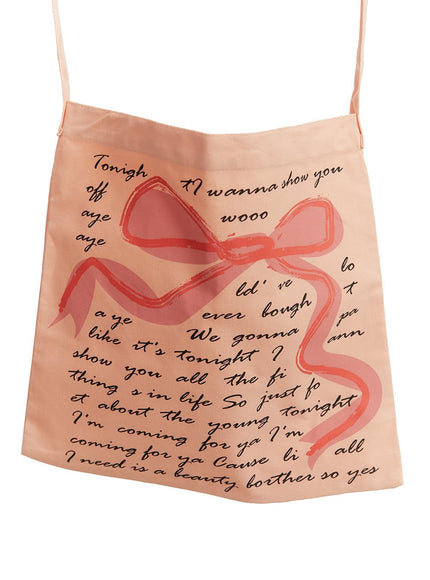 Tonigh tI wanna show you
off
aye wooo
aye
ld' ve lo
aye ever bough t
We gonna pa
like it's tonight I ann
show you all the fi
thing s in life So just fo
et about the young tonight
I'm coming for ya I'm
coming for ya Cause li all
I need is a beauty. borther so yes